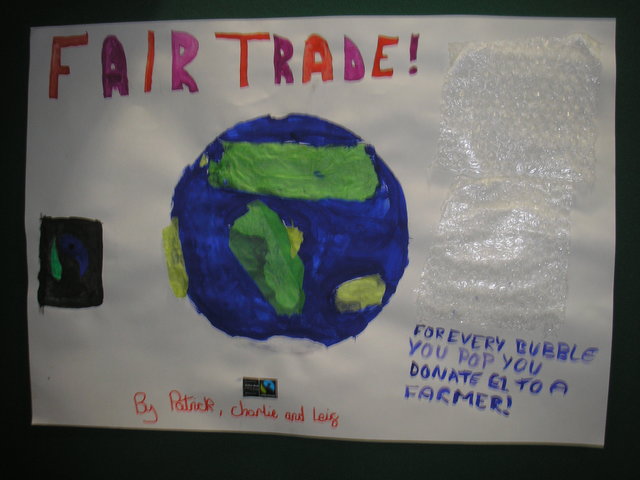 FAIR TRADE!
FOR EVERY BUBBLE
YOU POP YOU
DONATE £1 TO A
FARMER!
By Patrick, charlie and